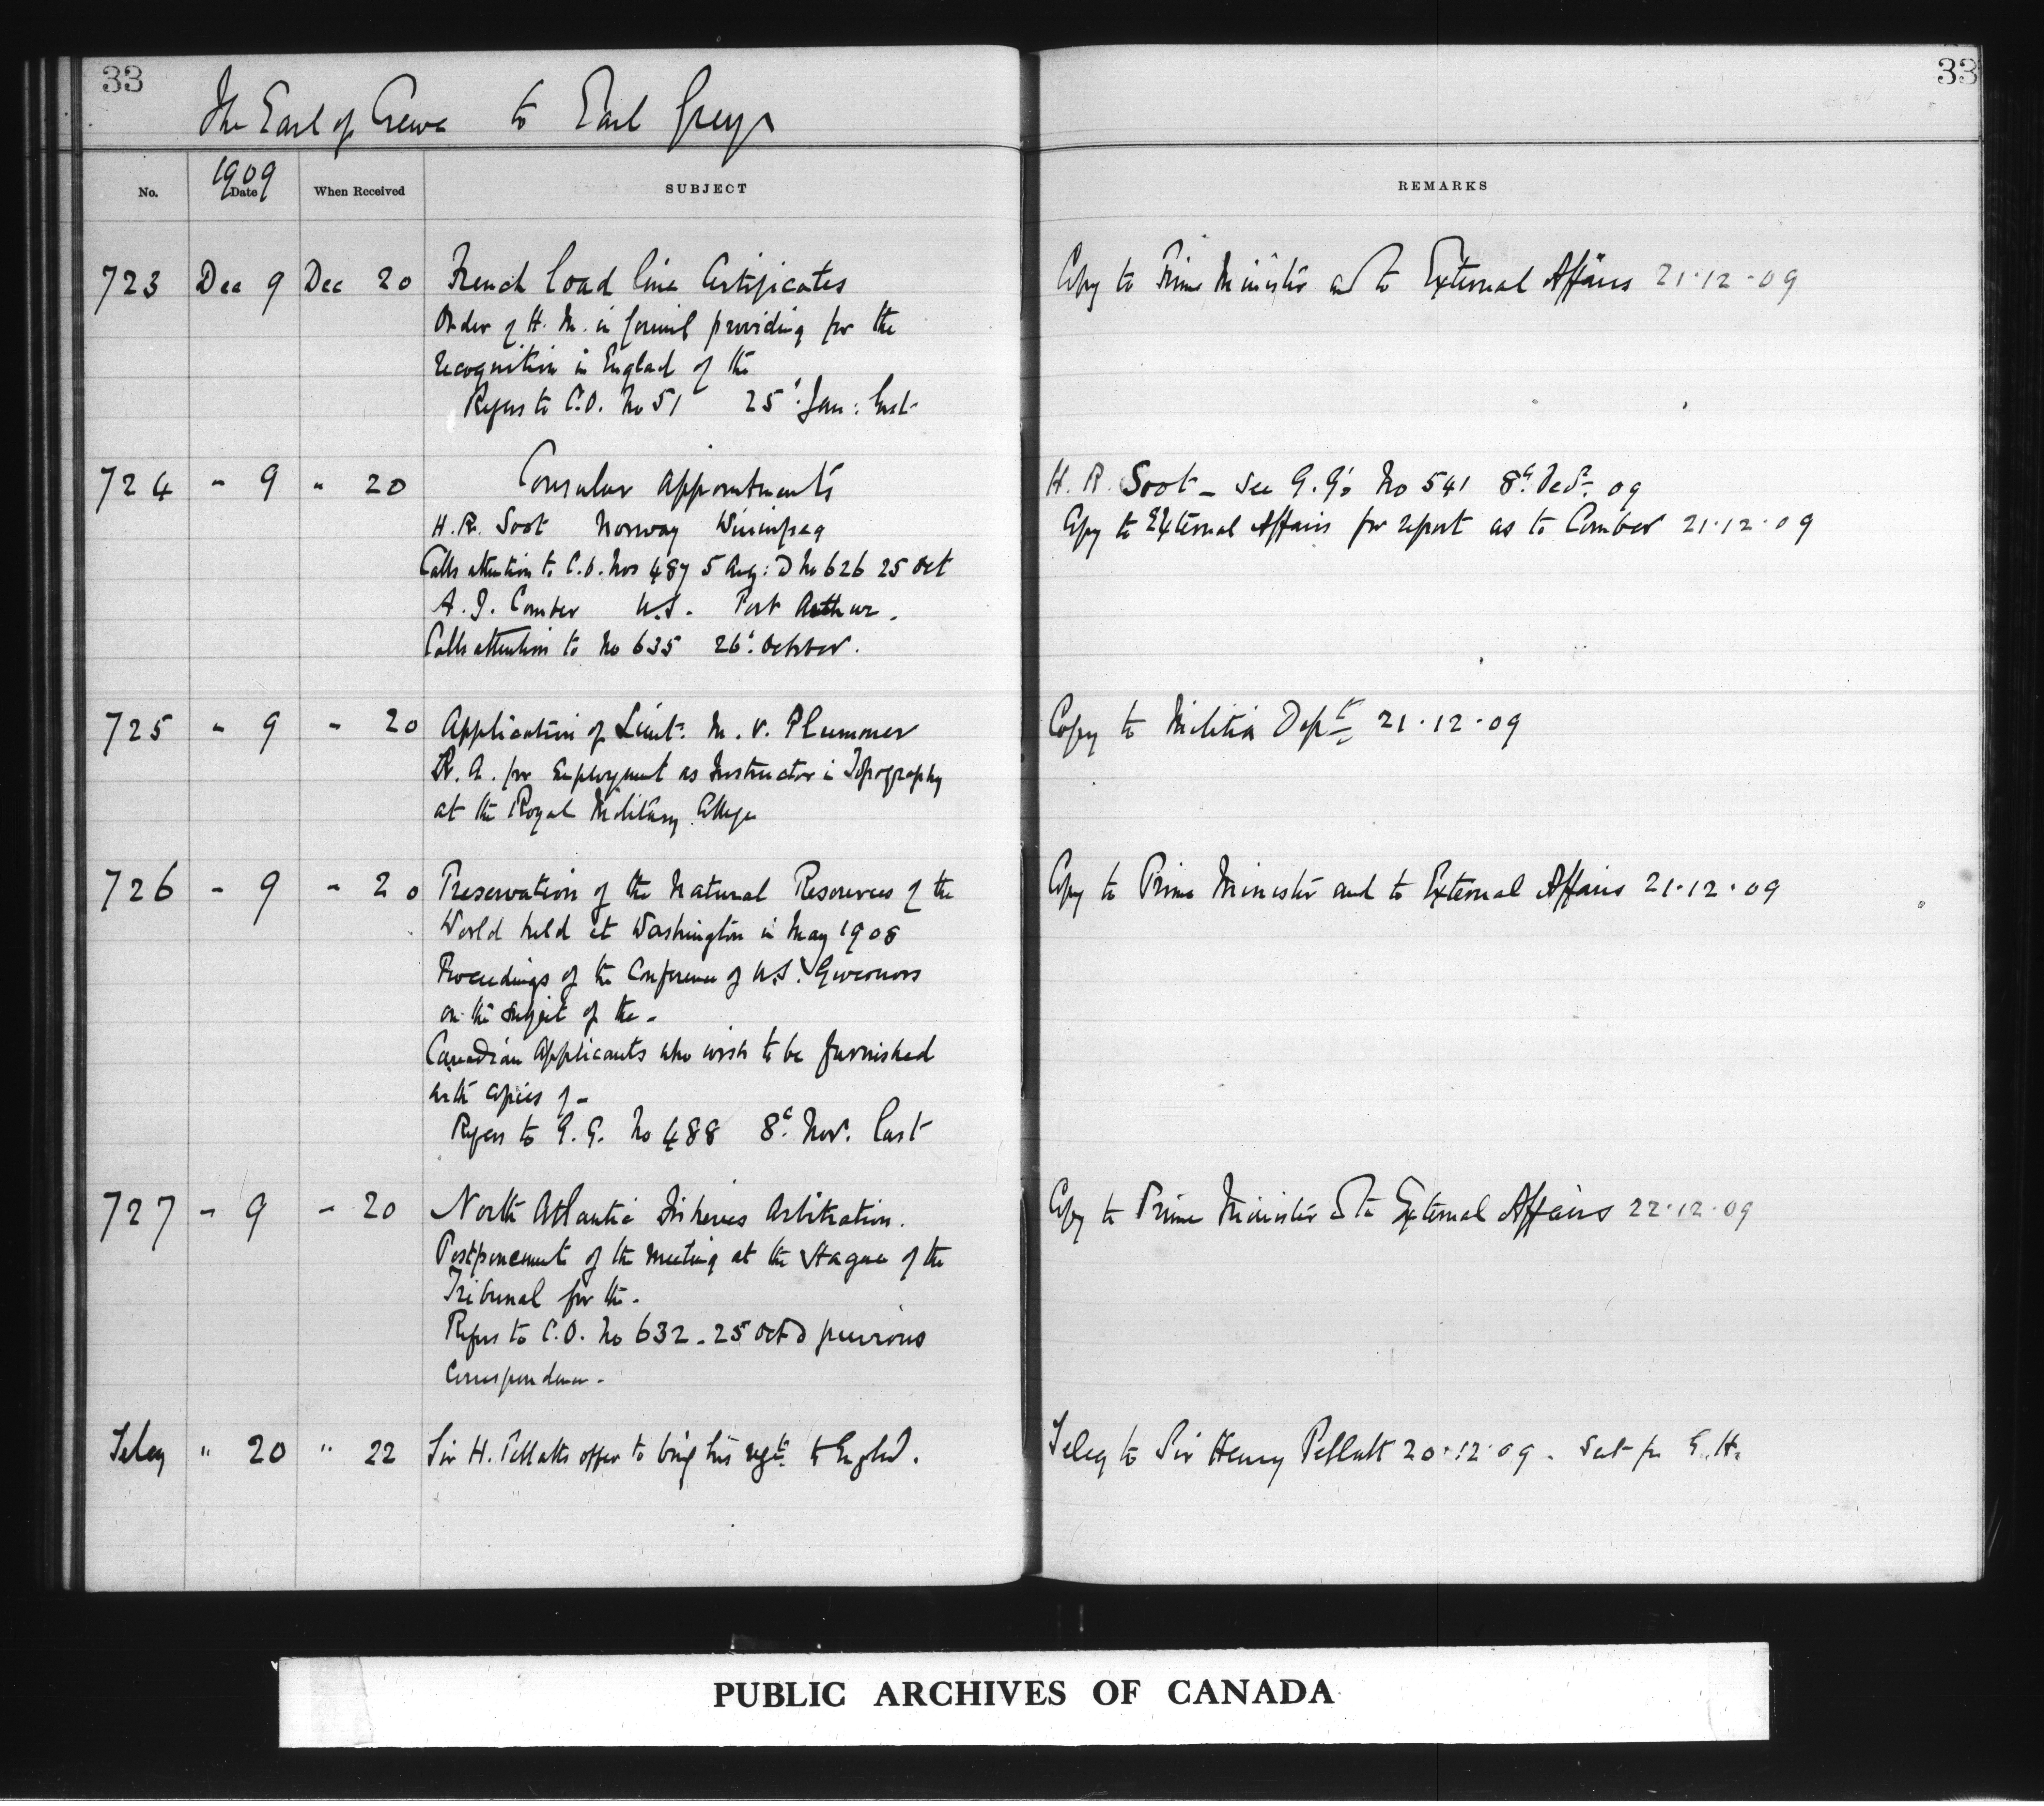 33
33
The Earl of Crewe to Earl Grey
1909
No. Date When Received SUBJECT REMARKS
723 Dec 9 Dec 20 French load line Certificates Copy to Prime Minister and to External Affairs 21.12.09
Order of H. M. in Council providing for the
recognition in England of the
Refers to C.O. No 51 25 Jan: last
724 - 9 " 20 Consular appointments H. R. Soot - See G.G's No 541 8th Dec. 09
H. R. Soot Norway Winnipeg Copy to External Affairs for report as to Comber 21.12.09
Calls attention to C.O. Nos 487 5 Aug: & No 626 25 Oct
A. J. Comber U.S. Port Arthur.
Calls attention to No 635 26. October.
725 - 9 - 20 Application of Lieut. M. V. Plummer Copy to Militia Dept. 21.12.09
R. A. for Employment as Instructor in Topography
at the Royal Military College
726 - 9 - 20 Preservation of the Natural Resources of the Copy to Prime Minister and to External Affairs 21.12.09
World held at Washington in May 1908
Proceedings of the Conference of U.S. Governors
on the subject of the -
Canadian applicants who wish to be furnished
with copies of -
Refers to G.G. No 488 8. Nov. last
727 - 9 - 20 North Atlantic Fisheries Arbitration. Copy to Prime Minister & to External Affairs 22.12.09
Postponement of the meeting at the Hague of the
Tribunal for the -
Refers to C.O. No 632 - 25 Oct & previous
Correspondence -
Teleg " 20 " 22 Sir H. Pellatt's offer to bring his regt. to England. Teleg to Sir Henry Pellatt 20.12.09 -
PUBLIC ARCHIVES OF CANADA